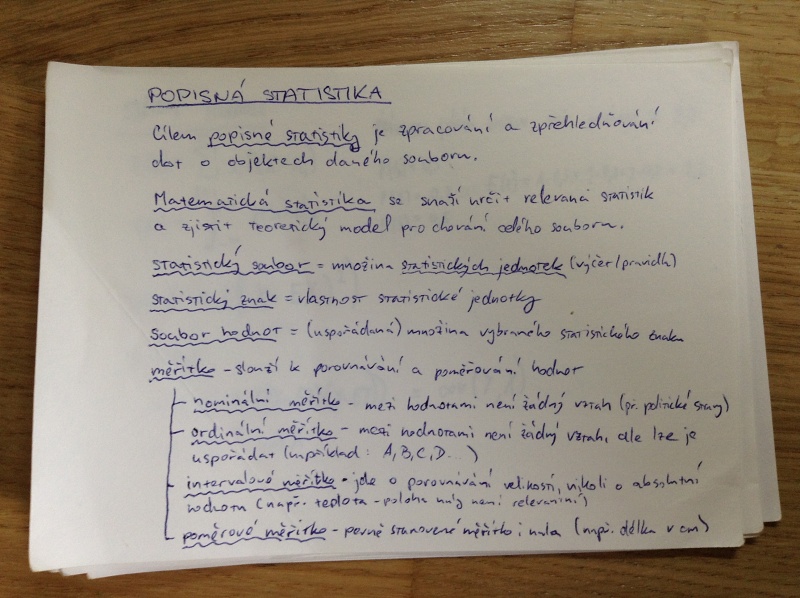 POPISNÁ STATISTIKA
Cílem popisné statistiky je zpracování a zpřehledňování
dat o objektech daného souboru.
Matematická statistika se snaží určit relevanci statistik
a zjistit teoretický model pro chování celého souboru.
statistický soubor = množina statistických jednotek (výčet/pravidla)
statistický znak = vlastnost statistické jednotky
soubor hodnot = (uspořádaná) množina vybraného statistického znaku
měřítko - slouží k porovnávání a poměřování hodnot
nominální měřítko - mezi hodnotami není žádný vztah (př. politické strany)
ordinální měřítko - mezi hodnotami není žádný vztah, ale lze je
uspořádat (například: A, B, C, D...)
intervalové měřítko - jde o porovnávání velikostí, nikoli o absolutní
hodnotu (např. teplota - poloha nuly není relevantní)
poměrové měřítko - pevně stanovené měřítko i nula (např. délka v cm)